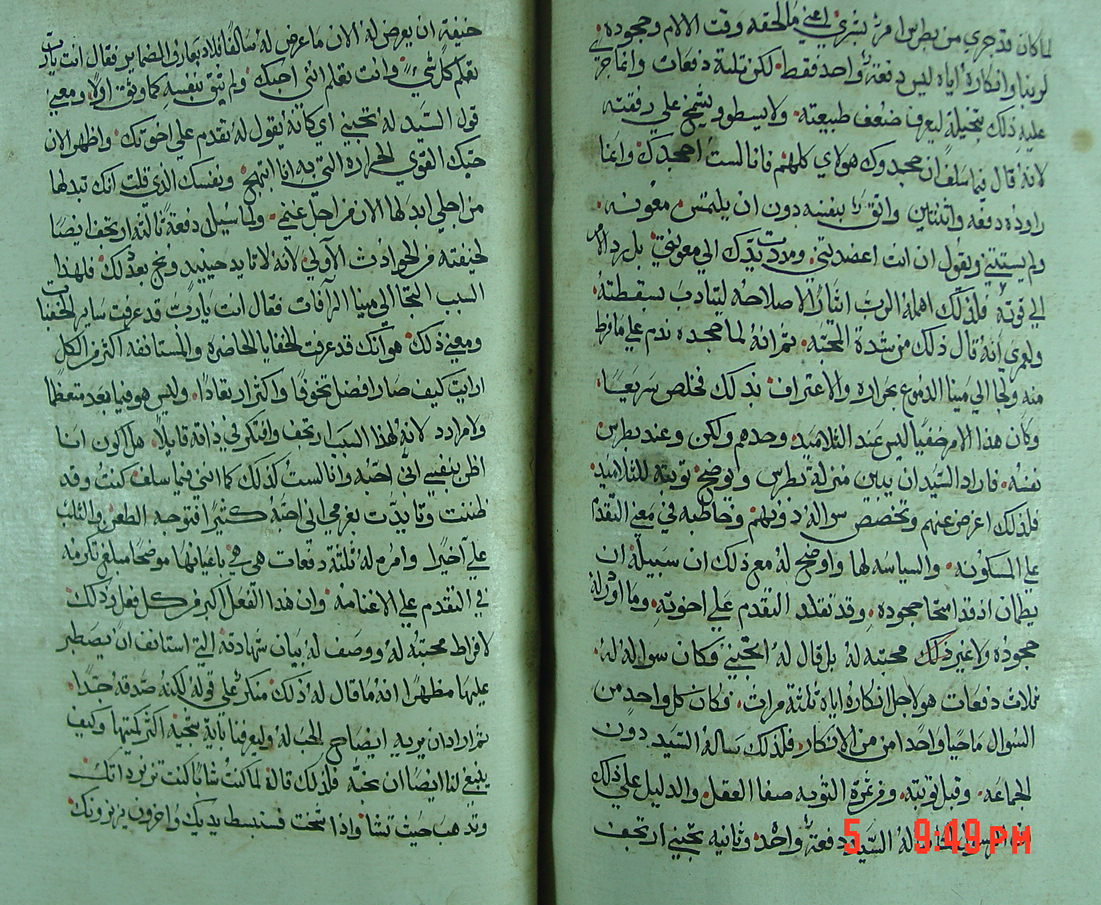 لما كان قد جرى من بطرس امر بشرى اعنى ما لحقه وقت الالام وجحوده
لربنا وانكاره اياه ليس دفعة واحد فقط لكن ثلثة دفعات وانما جرى
عليه ذلك بتخيله ليعرف ضعف طبيعته ولا يسطو ويشمخ على رفقته
لانه قال فيما سلف ان جحدوك هولاى كلهم فانا لست اجحدك وانما
راوده دفعه واثنتين واثق بنفسه دون ان يلتمس معونه
ولم يستثنى ويقول ان انت اعضدتنى ومددت يدك الى معونتى بل رد الامر
الى قوته فلذلك اهمله الرب ايثارا لاصلاحه ليتادب بسقطته
ولعمرى انه قال ذلك من شدة المحبه ثم انه لما جحده ندم على ما فرط
منه ولجا الى مينا الدموع بحراره والاعتراف بذلك فخلص سريعا
وكان هذا الامر خفيا ليس عند التلاميد وحدهم ولكن وعند بطرس
نفسه فاراد السيد ان يبين منزلة بطرس ويوضح توبته للتلاميد
فلذلك اعرض عنهم وتخصص سواله دونهم وخاطبه في معنى التقدم
على المسكونه والسياسه لها واوضح له مع ذلك ان سبيله ان
يطمان اذ قد امحا جحوده وقد تقلد التقدم على اخوته وما اورد له
جحوده ولا غير ذلك محبته له بل قال له اتحبنى فكان سواله له
ثلاث دفعات هو لاجل انكاره اياه ثلثة مرات فكان كل واحد من
السوال ماحيا واحدا من من الانكار فلذلك ساله السيد دون
الجماعه وقبل توبته ومن ثمرة التوبه صفا العقل والدليل على ذلك
له السيد دفعة واحده وثانيه تحبنى ارتجف
خيفة ان يعرض له الان ما عرض له سالفا فلاذ بعارف الضماير فقال انت يارب
تعلم كل شى وانت تعلم اننى احبك ولم يثق بنفسه كما وثق اولا ومعنى
قول السيد له تحبنى اى كانه يقول له تقدم على اخوتك واظهر الان
حبك القوى الحراره التى به انا ابتهج ونفسك الذى قلت انك تبدلها
من اجلى ابدلها الان من اجل غنمى ولما سيل دفعة ثالثه ارتجف ايضا
لخيفته من الحوادث الاولى لانه لا تايد حينيد ونجح بعد ذلك فلهذا
السبب التجا الى مينا الرافات فقال انت يارب قد عرفت ساير الخفيات
ومعنى ذلك هو انك قد عرفت الخفايا الحاضره والمستانفه اكثر من الكل
ارايت كيف صار افضل تخوفا واكثر ارتعادا وليس هو فيما بعد متعظما
ولا مرادد لانه لهذا السبب ارتجف وافتكر في ذاته قايلا هل اكون انا
اظن بنفسى انى احبه وانا لست كذلك كما اننى فيما سلف كنت وقد
ظننت وتايدت بعزمى انى احبه كثيرا فتوجه الطعن والثلب
على اخيرا وامره له ثلثة دفعات هى هى باعيانها موضحا مبلغ تكرمه
في التقدم على الاغنامه وان هذا الفعل اكبر من كل فعل وذلك
لافراط محبته له ووصف له بيان شهادته التى استانف ان يصطبر
عليها مظهرا انه ما قال له ذلك منكرا على قوله لكنه صدقه جدا
ثم اراد ان يريه ايضاح الحب له وليعرفنا باية سجيه اكثر كميتها وكيف
ينبغى لنا ايضا ان نحبه فلذلك قال له لما كنت شابا كنت تزنر ذاتك
وتدهب حيث تشا واذا شخت فستبسط يديك واخرون يزنرونك
5 9:49 PM